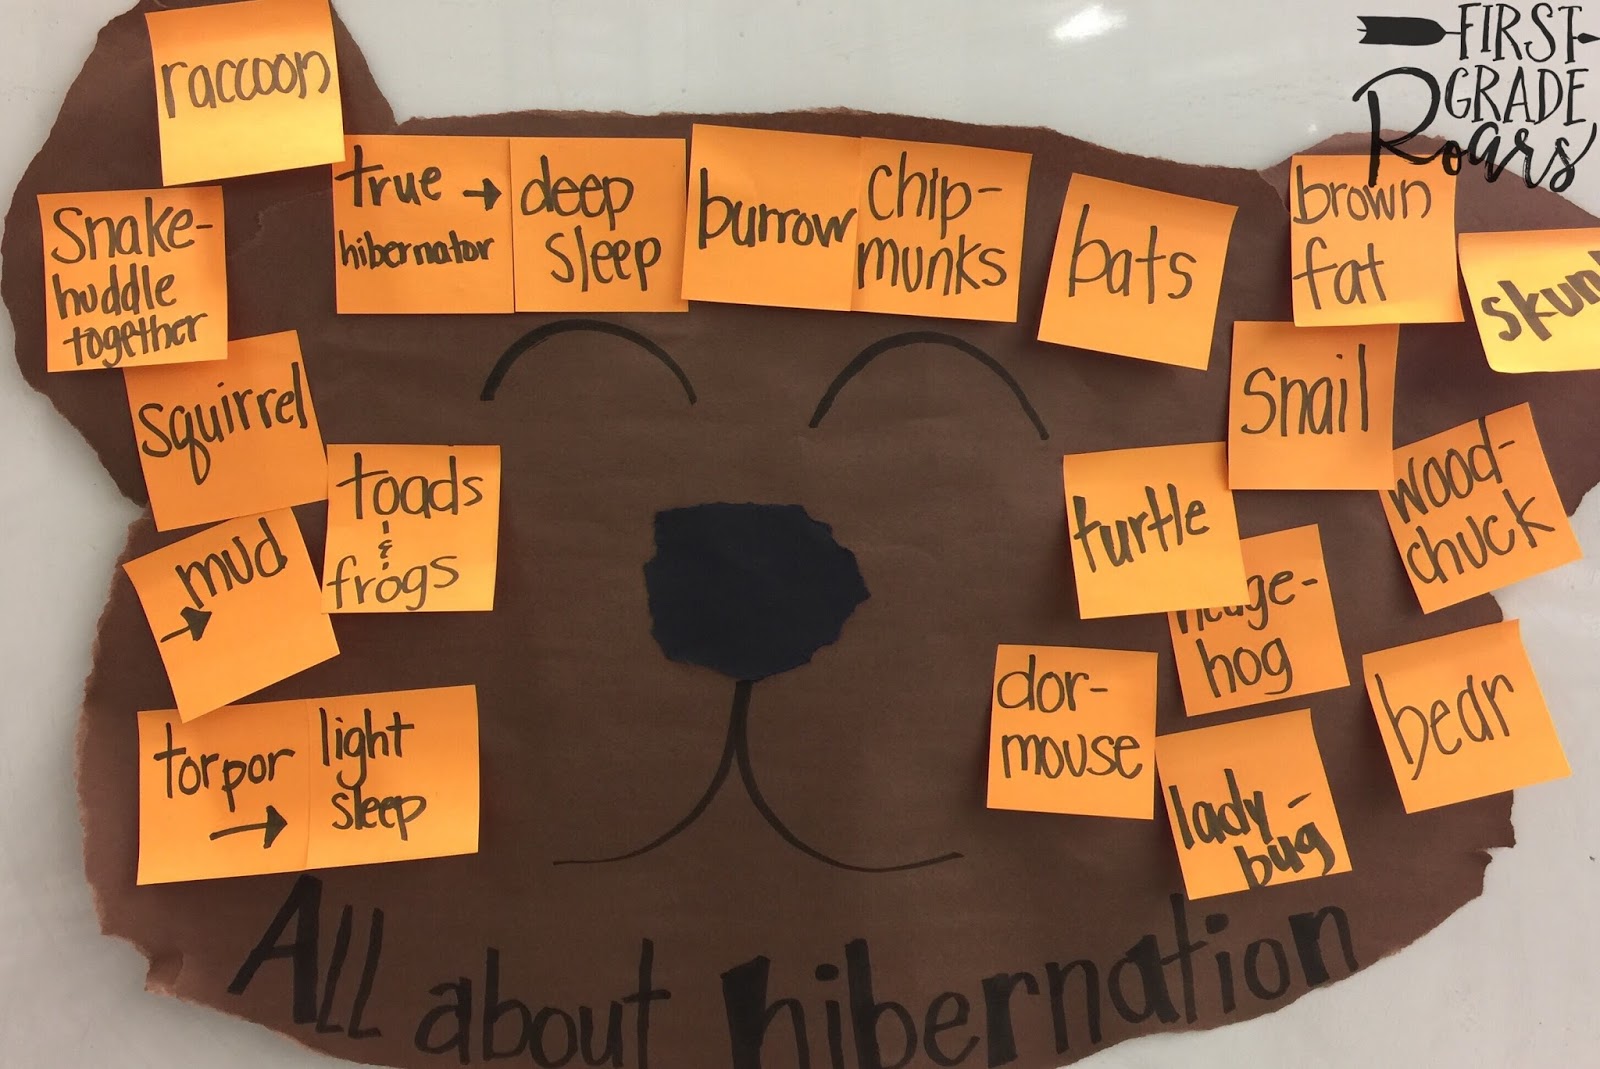 FIRST
GRADE
Roars
raccoon
Snake-
huddle
together
true →
hibernator
deep
sleep
burrow
chip-
munks
bats
brown
fat
squirrel
snail
toads
&
frogs
turtle
wood-
chuck
mud
→
hedge-
hog
dor-
mouse
bear
torpor
→
light
sleep
lady-
bug
All about hibernation